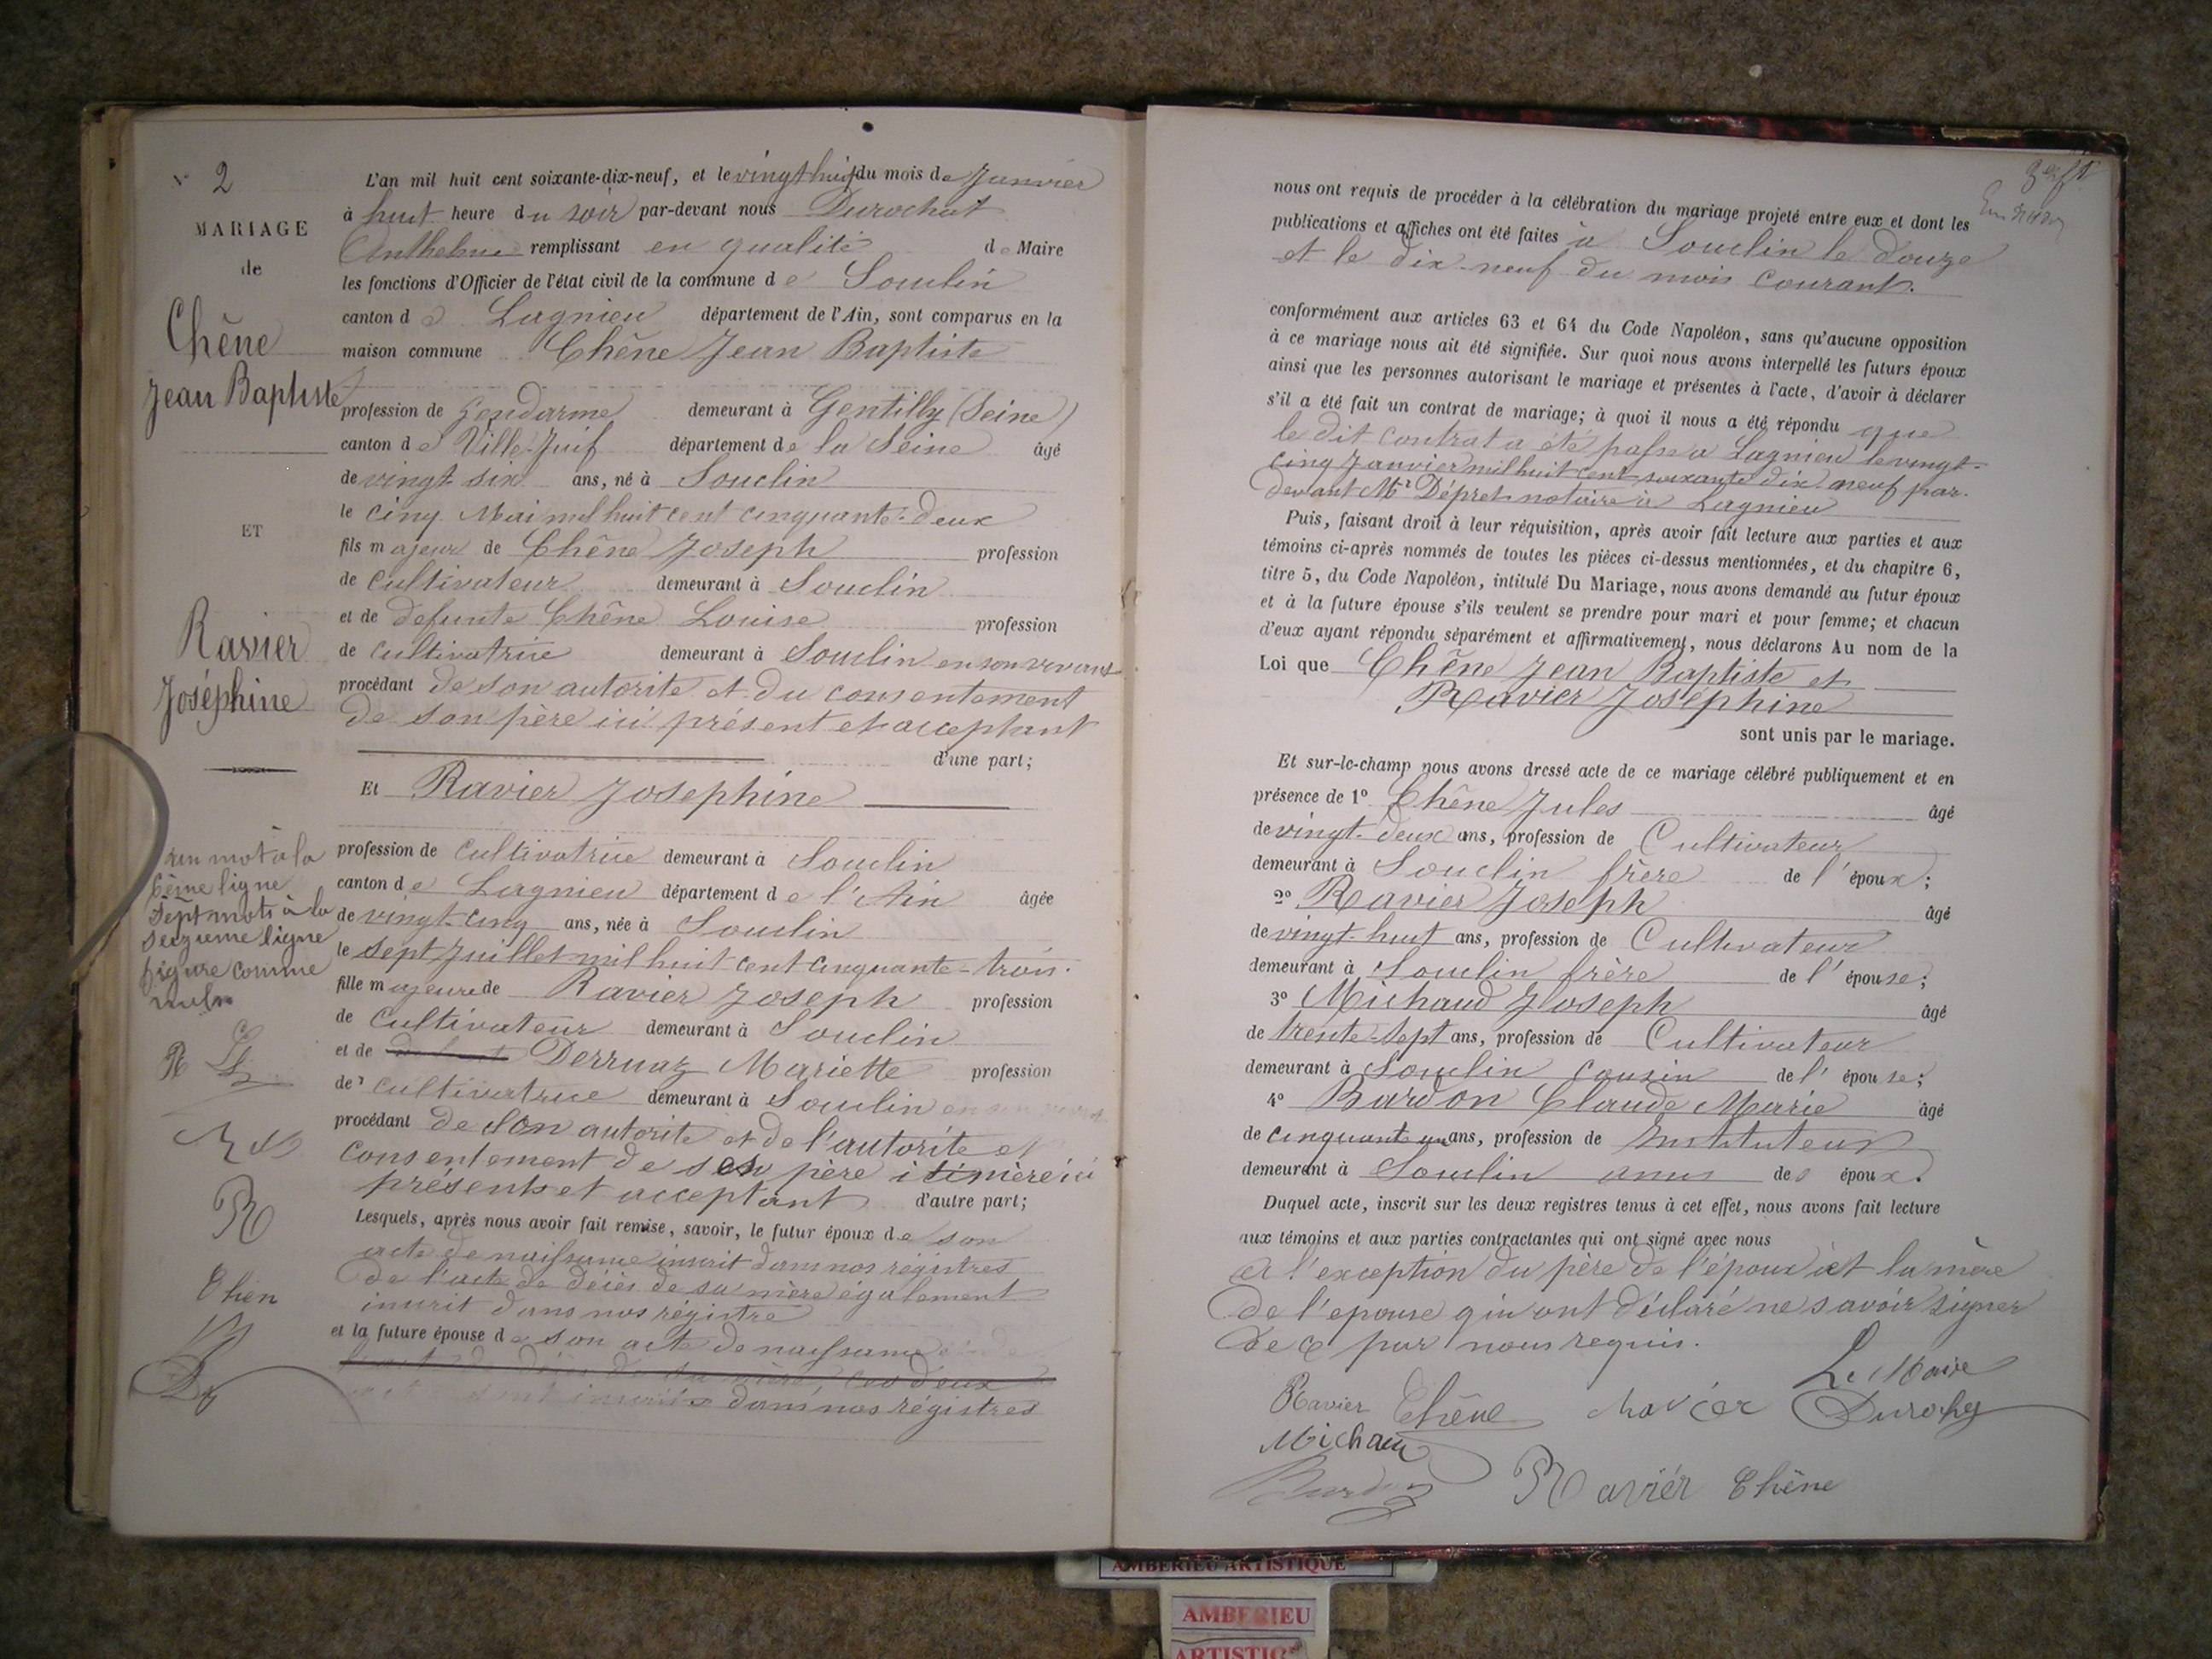 N° 2
MARIAGE
de
Chêne
Jean Baptiste
ET
Ravier
Joséphine
un mot à la
6ème ligne
sept mots à la
seizième ligne
figure comme
nuls
R
Chen
L'an mil huit cent soixante-dix-neuf, et le vingt huit du mois de Janvier
à huit heure du soir par-devant nous Durochat
Anthelme remplissant en qualité de Maire
les fonctions d'Officier de l'état civil de la commune de Souclin
canton de Lagnieu département de l'Ain, sont comparus en la
maison commune Chêne Jean Baptiste
profession de gendarme demeurant à Gentilly (Seine)
canton de Ville-Juif département de la Seine âgé
de vingt-six ans, né à Souclin
le cinq Mai mil huit cent cinquante-deux
fils majeur de Chêne Joseph profession
de cultivateur demeurant à Souclin
et de defunte Chêne Louise profession
de cultivatrice demeurant à Souclin en son vivant
procédant de son autorite et du consentement
de son père ici présent et acceptant
d'une part;
Et Ravier Josephine
profession de cultivatrice demeurant à Souclin
canton de Lagnieu département de l'Ain âgée
de vingt-cinq ans, née à Souclin
le sept Juillet mil huit cent cinquante-trois.
fille majeure de Ravier Joseph profession
de cultivateur demeurant à Souclin
et de Derruaz Mariette profession
de cultivatrice demeurant à Souclin
procédant de son autorite et de l'autorite et
consentement de ses père mère ici
présents et acceptant d'autre part;
Lesquels, après nous avoir fait remise, savoir, le futur époux de son
acte de naissance inscrit dans nos régistres
de l'acte de décès de sa mère également
inscrit dans nos régistre
et la future épouse de son acte de naissance
ces deux
dans nos régistres
nous ont requis de procéder à la célébration du mariage projeté entre eux et dont les
publications et affiches ont été faites à Souclin le douze
et le dix-neuf du mois courant.
conformément aux articles 63 et 64 du Code Napoléon, sans qu'aucune opposition
à ce mariage nous ait été signifiée. Sur quoi nous avons interpellé les futurs époux
ainsi que les personnes autorisant le mariage et présentes à l'acte, d'avoir à déclarer
s'il a été fait un contrat de mariage; à quoi il nous a été répondu que
le dit contrat a été passé a Lagnieu le vingt-
cinq Janvier mil huit cent soixante dix neuf par-
devant Me Dépret notaire à Lagnieu
Puis, faisant droit à leur réquisition, après avoir fait lecture aux parties et aux
témoins ci-après nommés de toutes les pièces ci-dessus mentionnées, et du chapitre 6,
titre 5, du Code Napoléon, intitulé Du Mariage, nous avons demandé au futur époux
et à la future épouse s'ils veulent se prendre pour mari et pour femme; et chacun
d'eux ayant répondu séparément et affirmativement, nous déclarons Au nom de la
Loi que Chêne Jean Baptiste et
Ravier Joséphine
sont unis par le mariage.
Et sur-le-champ nous avons dressé acte de ce mariage célébré publiquement et en
présence de 1° Chêne Jules âgé
de vingt-deux ans, profession de Cultivateur
demeurant à Souclin frère de l'époux;
2° Ravier Joseph âgé
de vingt-huit ans, profession de Cultivateur
demeurant à Souclin frère de l'épouse;
3° Michaud Joseph âgé
de trente-sept ans, profession de Cultivateur
demeurant à Souclin cousin de l'épouse;
4° Bardon Claude Marie âgé
de cinquante un ans, profession de Instituteur
demeurant à Souclin amis des époux.
Duquel acte, inscrit sur les deux registres tenus à cet effet, nous avons fait lecture
aux témoins et aux parties contractantes qui ont signé avec nous
à l'exception du père de l'époux et la mère
de l'epouse qui ont déclaré ne savoir signer
de ce par nous requis.
Le Maire
Ravier Chêne Ravier Duroch
Michau
Bardon Ravier Chêne
AMBERIEU ARTISTIQUE
AMBERIEU